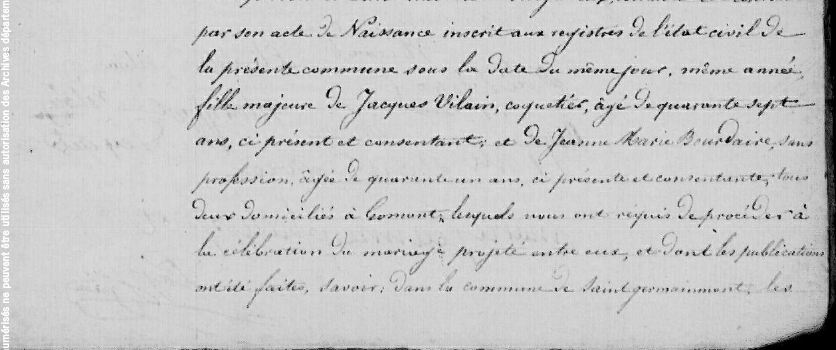 par son acte de Naissance inscrit aux registres de l'état civil de
la présente commune sous la date du même jour, même année,
fille majeure de Jacques Vilain, coquetier, âgé de quarante sept
ans, ci présent et consentant; et de Jeanne Marie Bourdaire, sans
profession, âgée de quarante un ans, ci présente et consentante, tous
deux domiciliés à Gomont; lesquels nous ont requis de procéder à
la célébration du mariage projeté entre eux, et dont les publications
ont été faites, savoir: dans la commune de Saint germainmont, les
umérisés ne peuvent être utilisés sans autorisation des Archives départem